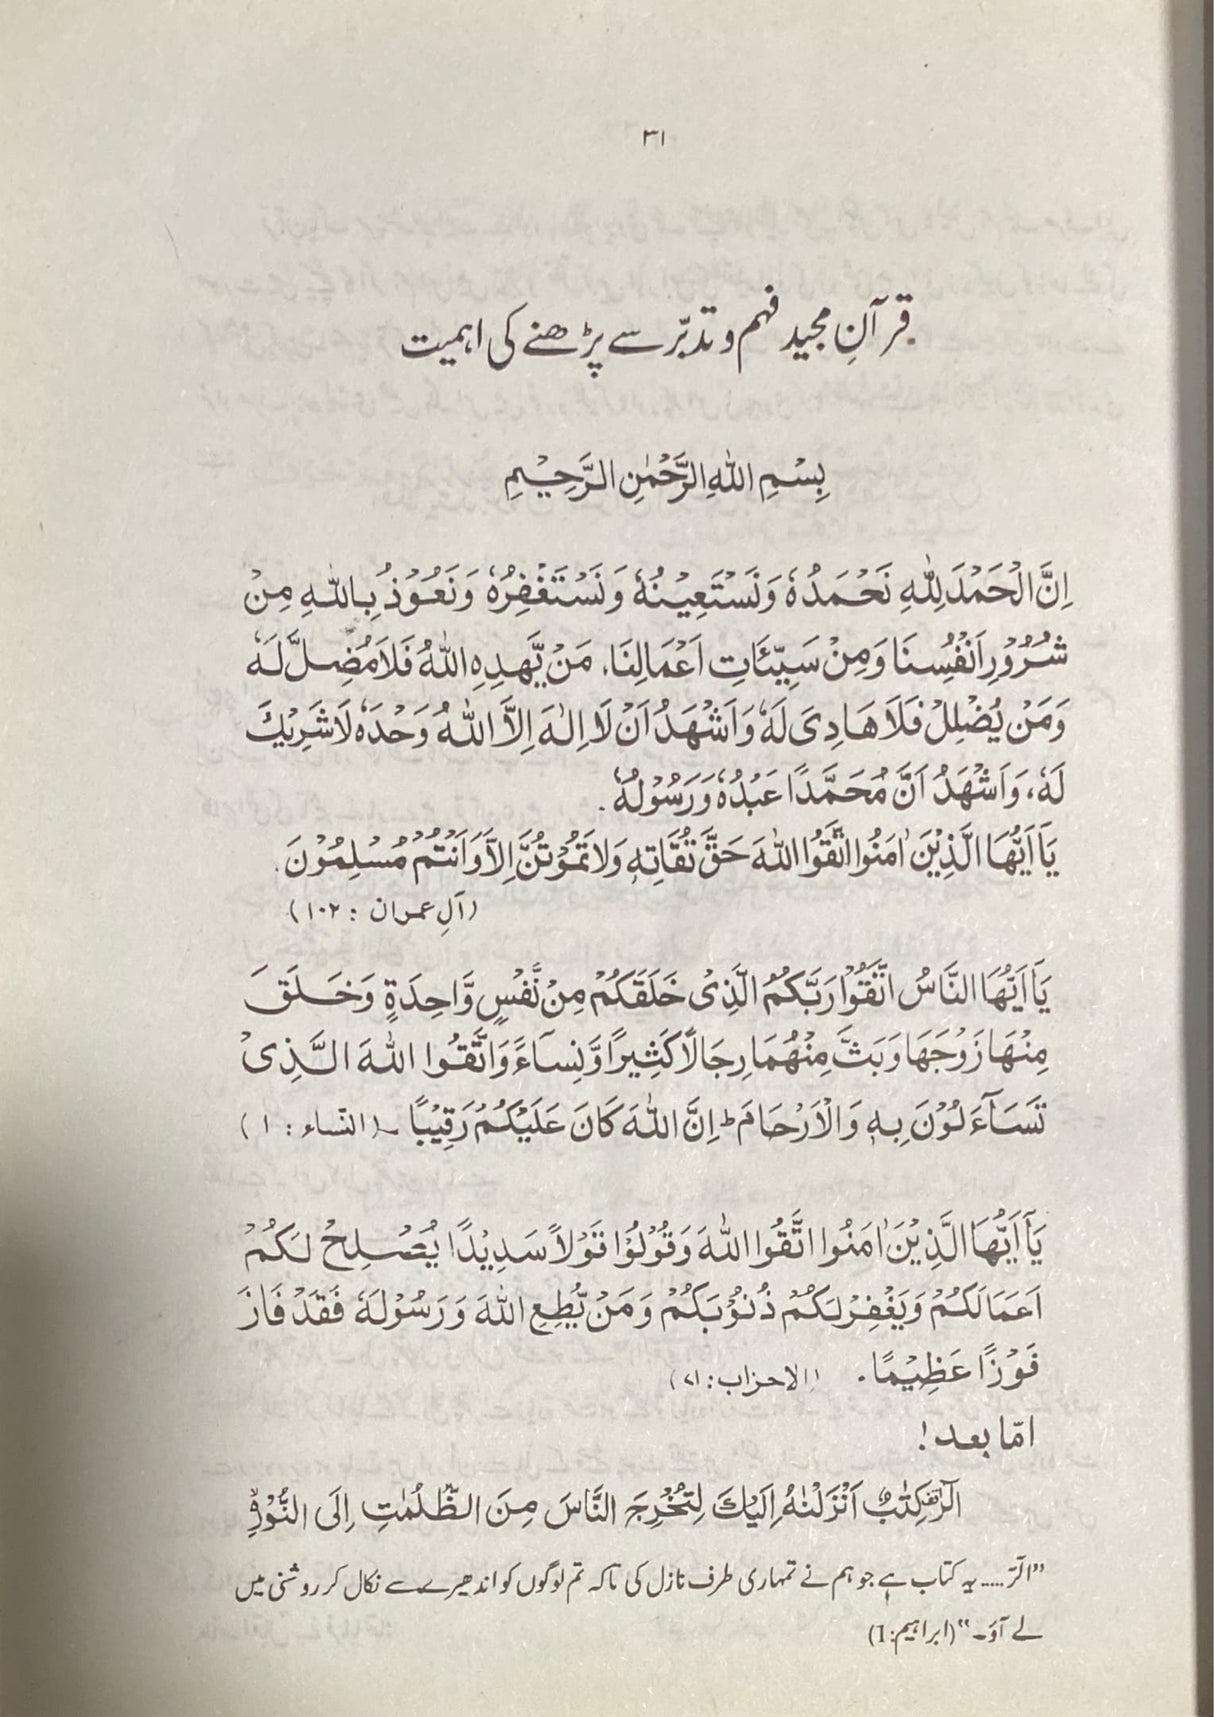 ۳۱
قرآنِ مجید فہم و تدبّر سے پڑھنے کی اہمیت
بِسْمِ اللهِ الرَّحْمٰنِ الرَّحِيْمِ
اِنَّ الْحَمْدَ لِلّٰهِ نَحْمَدُهٗ وَنَسْتَعِيْنُهٗ وَنَسْتَغْفِرُهٗ وَنَعُوْذُ بِاللّٰهِ مِنْ
شُرُوْرِ اَنْفُسِنَا وَمِنْ سَيِّئَاتِ اَعْمَالِنَا، مَنْ يَّهْدِهِ اللّٰهُ فَلَا مُضِلَّ لَهٗ
وَمَنْ يُضْلِلْ فَلَا هَادِىَ لَهٗ وَاَشْهَدُ اَنْ لَا اِلٰهَ اِلَّا اللّٰهُ وَحْدَهٗ لَا شَرِيْكَ
لَهٗ، وَاَشْهَدُ اَنَّ مُحَمَّدًا عَبْدُهٗ وَرَسُوْلُهٗ.
يَآ اَيُّهَا الَّذِيْنَ اٰمَنُوا اتَّقُوا اللّٰهَ حَقَّ تُقَاتِهٖ وَلَا تَمُوْتُنَّ اِلَّا وَاَنْتُمْ مُسْلِمُوْنَ.
(آلِ عمران : ۱۰۲)
يَآ اَيُّهَا النَّاسُ اتَّقُوْا رَبَّكُمُ الَّذِىْ خَلَقَكُمْ مِنْ نَّفْسٍ وَّاحِدَةٍ وَخَلَقَ
مِنْهَا زَوْجَهَا وَبَثَّ مِنْهُمَا رِجَالًا كَثِيْرًا وَّنِسَاءً وَاتَّقُوا اللّٰهَ الَّذِىْ
تَسَآءَلُوْنَ بِهٖ وَالْاَرْحَامَ ؕ اِنَّ اللّٰهَ كَانَ عَلَيْكُمْ رَقِيْبًا ۔ (النّساء : ۱)
يَآ اَيُّهَا الَّذِيْنَ اٰمَنُوا اتَّقُوا اللّٰهَ وَقُوْلُوْا قَوْلًا سَدِيْدًا يُصْلِحْ لَكُمْ
اَعْمَالَكُمْ وَيَغْفِرْلَكُمْ ذُنُوْبَكُمْ وَمَنْ يُّطِعِ اللّٰهَ وَرَسُوْلَهٗ فَقَدْ فَازَ
فَوْزًا عَظِيْمًا. (الاحزاب : ۷۱)
امّا بعد !
الٓرٰ كِتٰبٌ اَنْزَلْنٰهُ اِلَيْكَ لِتُخْرِجَ النَّاسَ مِنَ الظُّلُمٰتِ اِلَى النُّوْرِ
”الٓرٰ.... یہ کتاب ہے جو ہم نے تمہاری طرف نازل کی تاکہ تم لوگوں کو اندھیرے سے نکال کر روشنی میں
لے آؤ۔“ (ابراہیم:1)